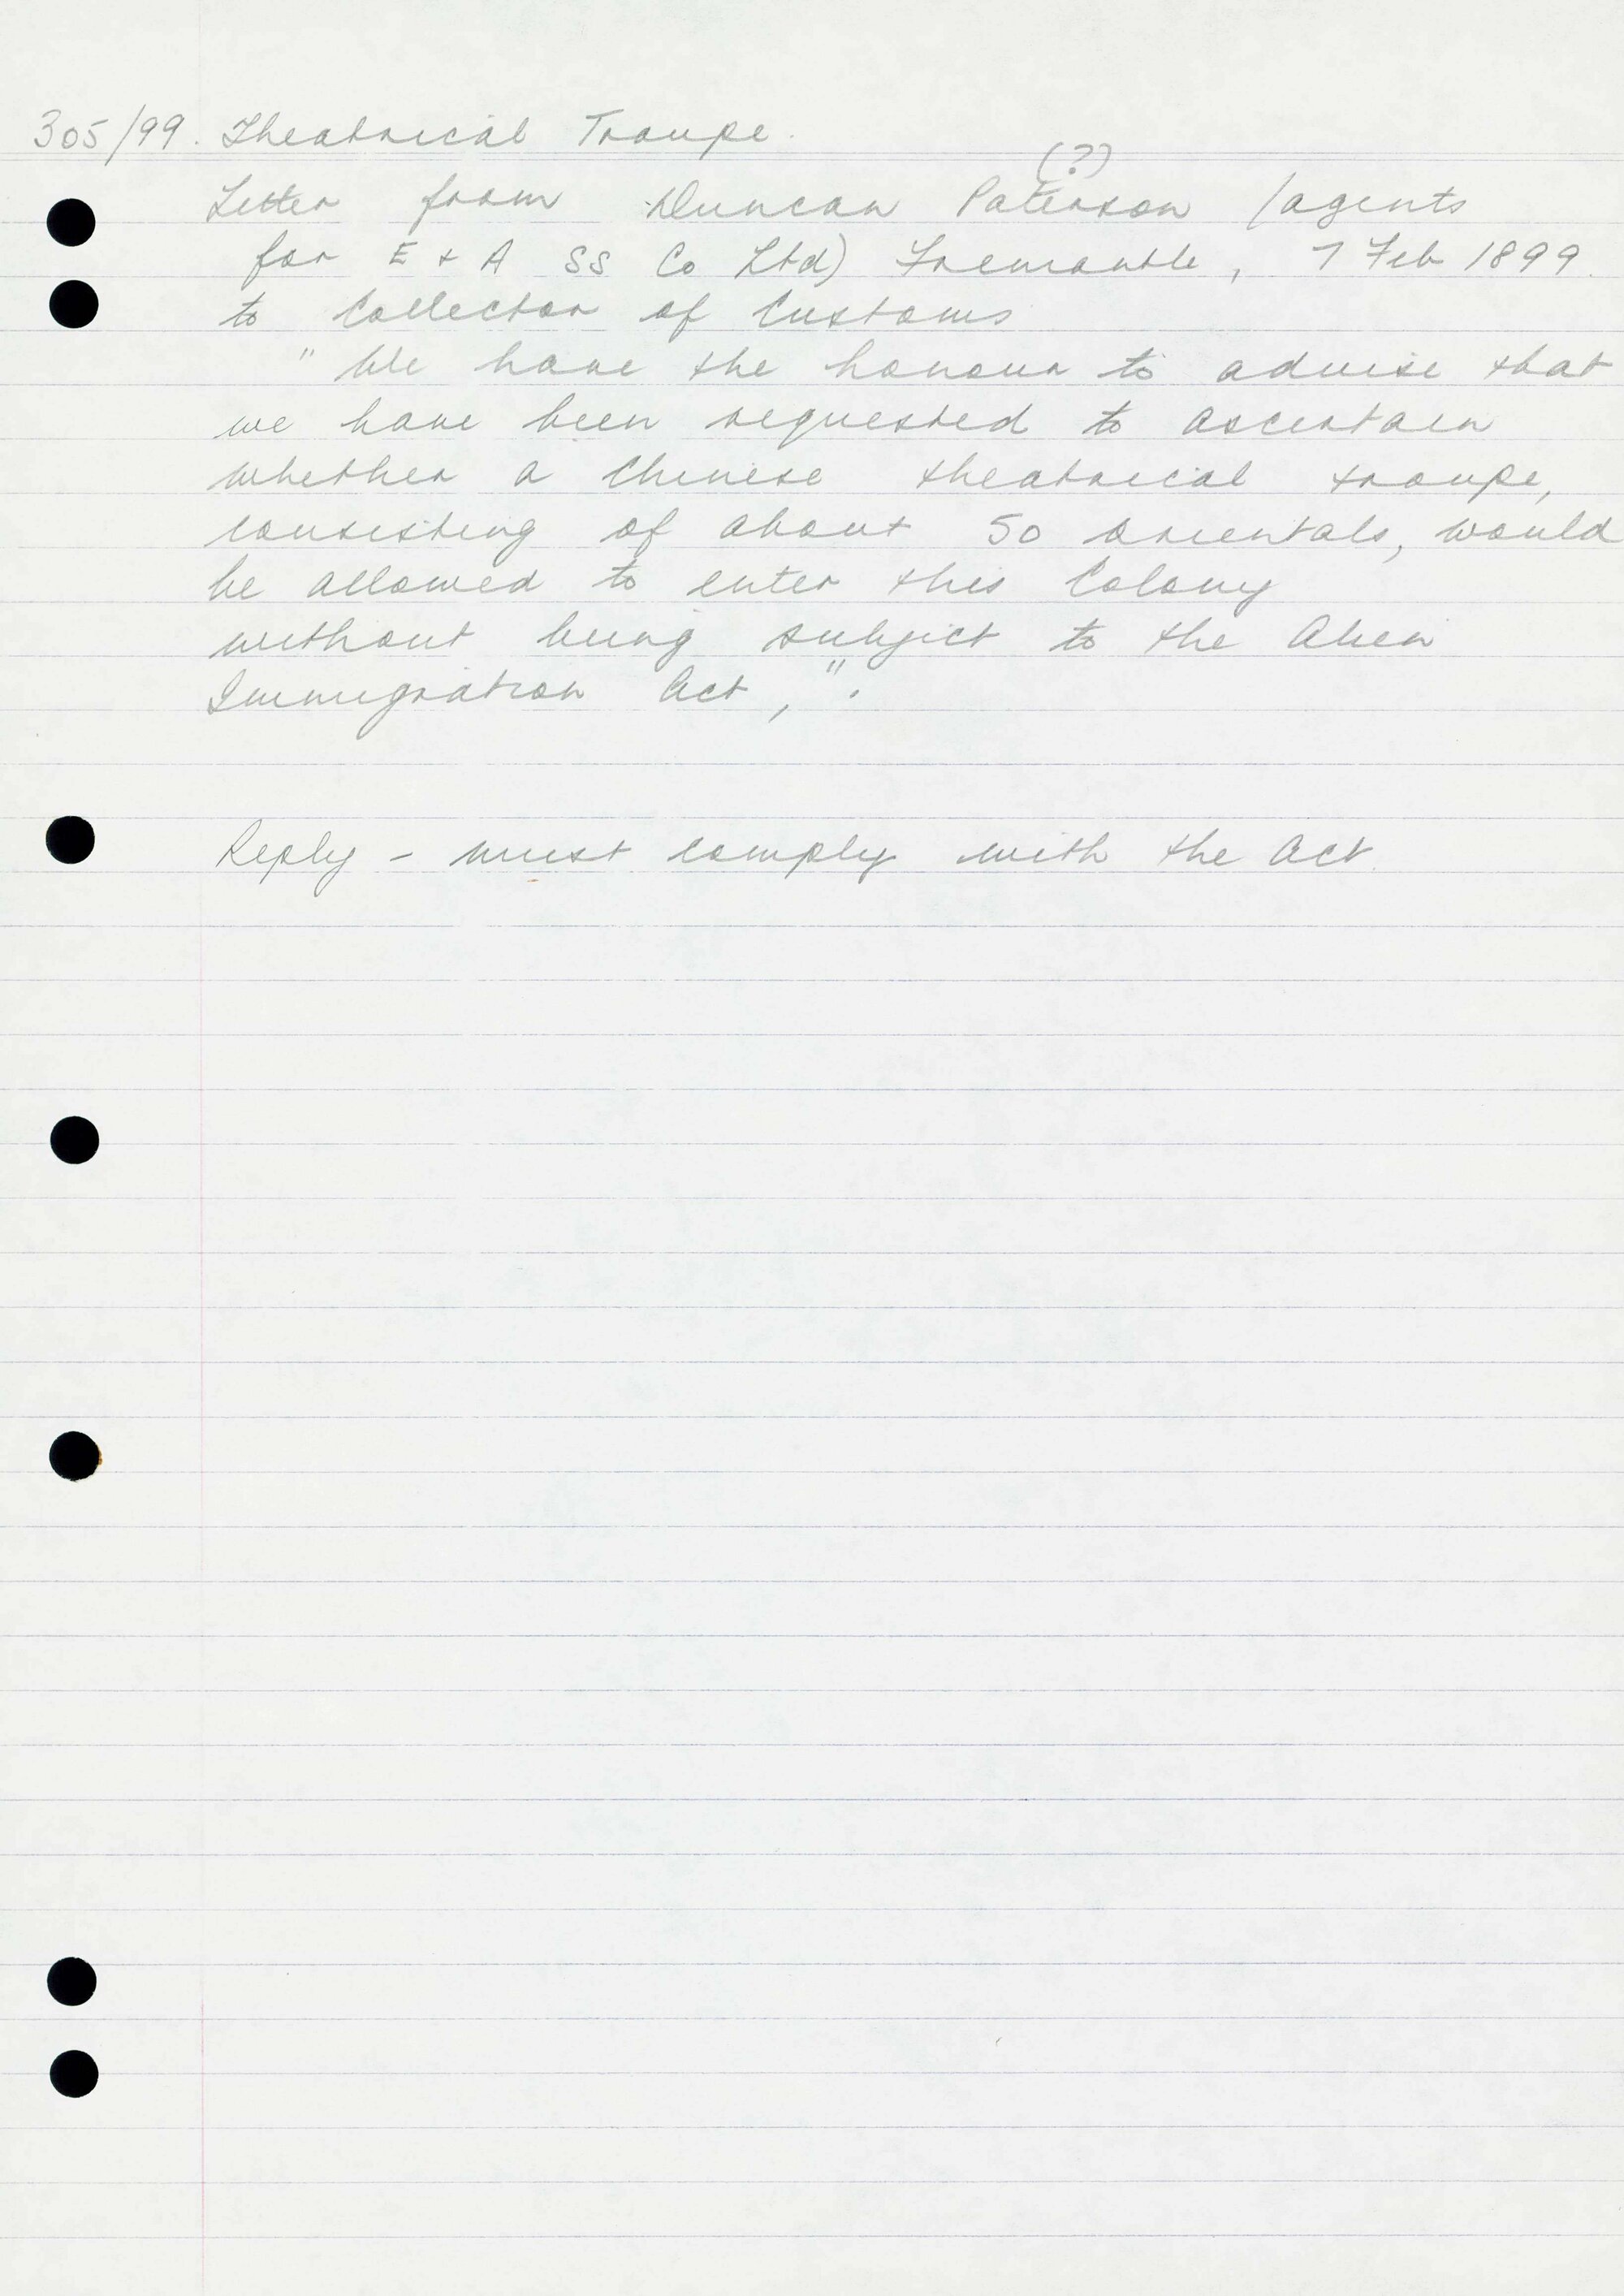 305/99. Theatrical Troupe.
(?)
Letter from Duncan Paterson (agents
for E & A SS Co Ltd) Fremantle, 7 Feb 1899.
to Collector of Customs
" We have the honour to advise that
we have been requested to ascertain
whether a Chinese theatrical troupe,
consisting of about 50 orientals, would
be allowed to enter this Colony
without being subject to the Alien
Immigration Act, ".
Reply - must comply with the Act.